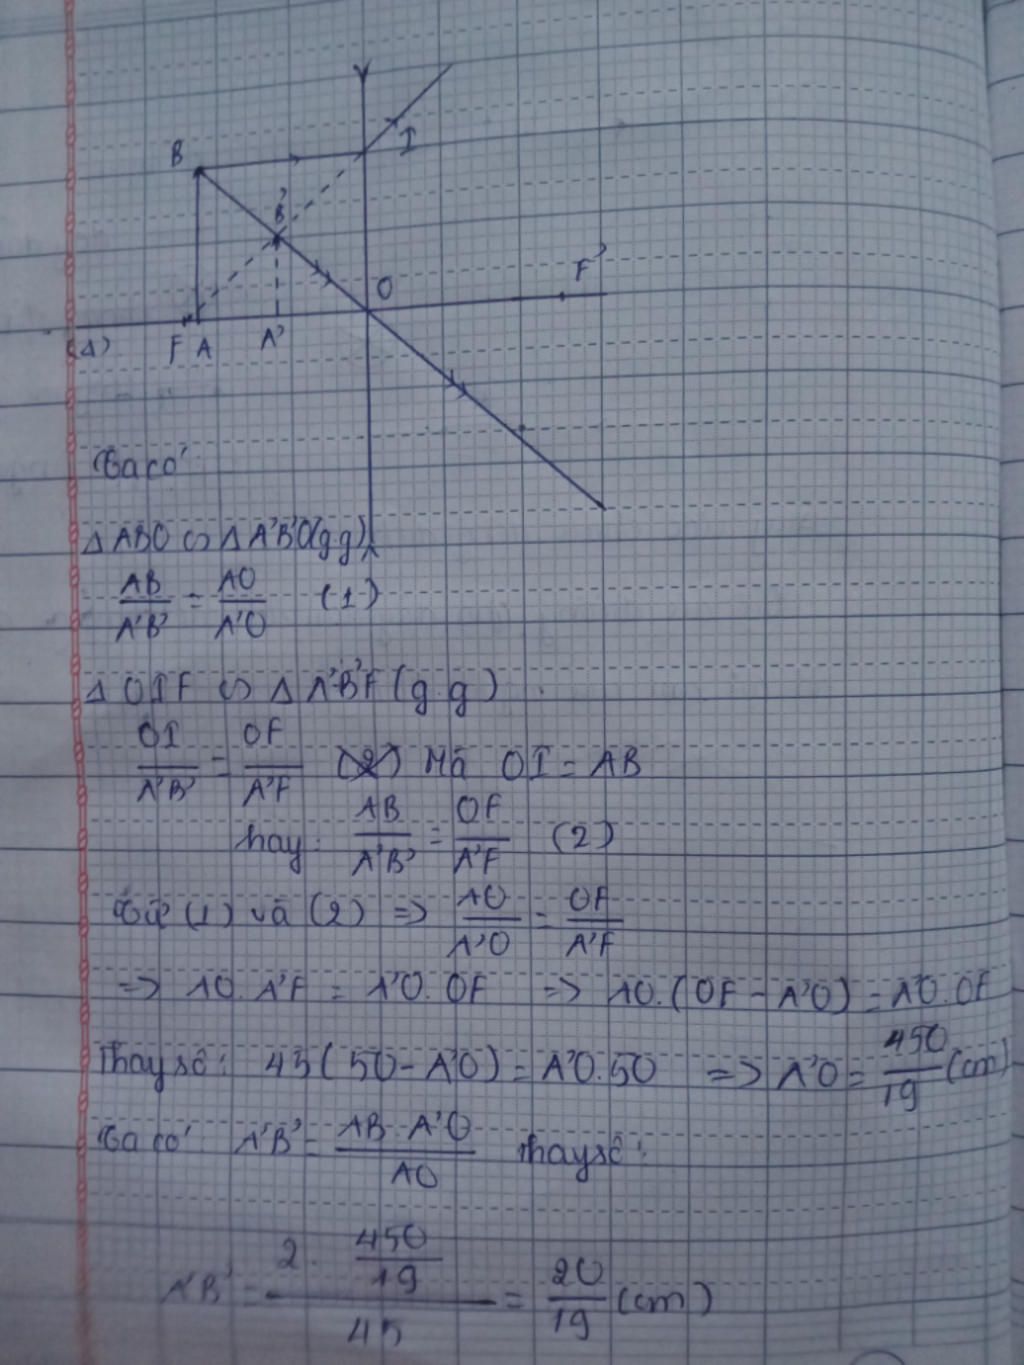 I
B
B'
O
F'
(Δ)
F A A'
Ta có:
Δ ABO ∽ Δ A'B'O (g.g)
AB/A'B' = AO/A'O (1)
Δ OIF ∽ Δ A'B'F (g.g)
OI/A'B' = OF/A'F (2) Mà OI = AB
hay: AB/A'B' = OF/A'F (2)
Từ (1) và (2) => AO/A'O = OF/A'F
=> AO. A'F = A'O. OF => AO.(OF - A'O) = A'O.OF
Thay số: 45(50 - A'O) = A'O.50 => A'O = 450/19 (cm)
Ta có: A'B' = AB. A'O/AO Thay số:
A'B' = 2. 450/19 / 45 = 20/19 (cm)